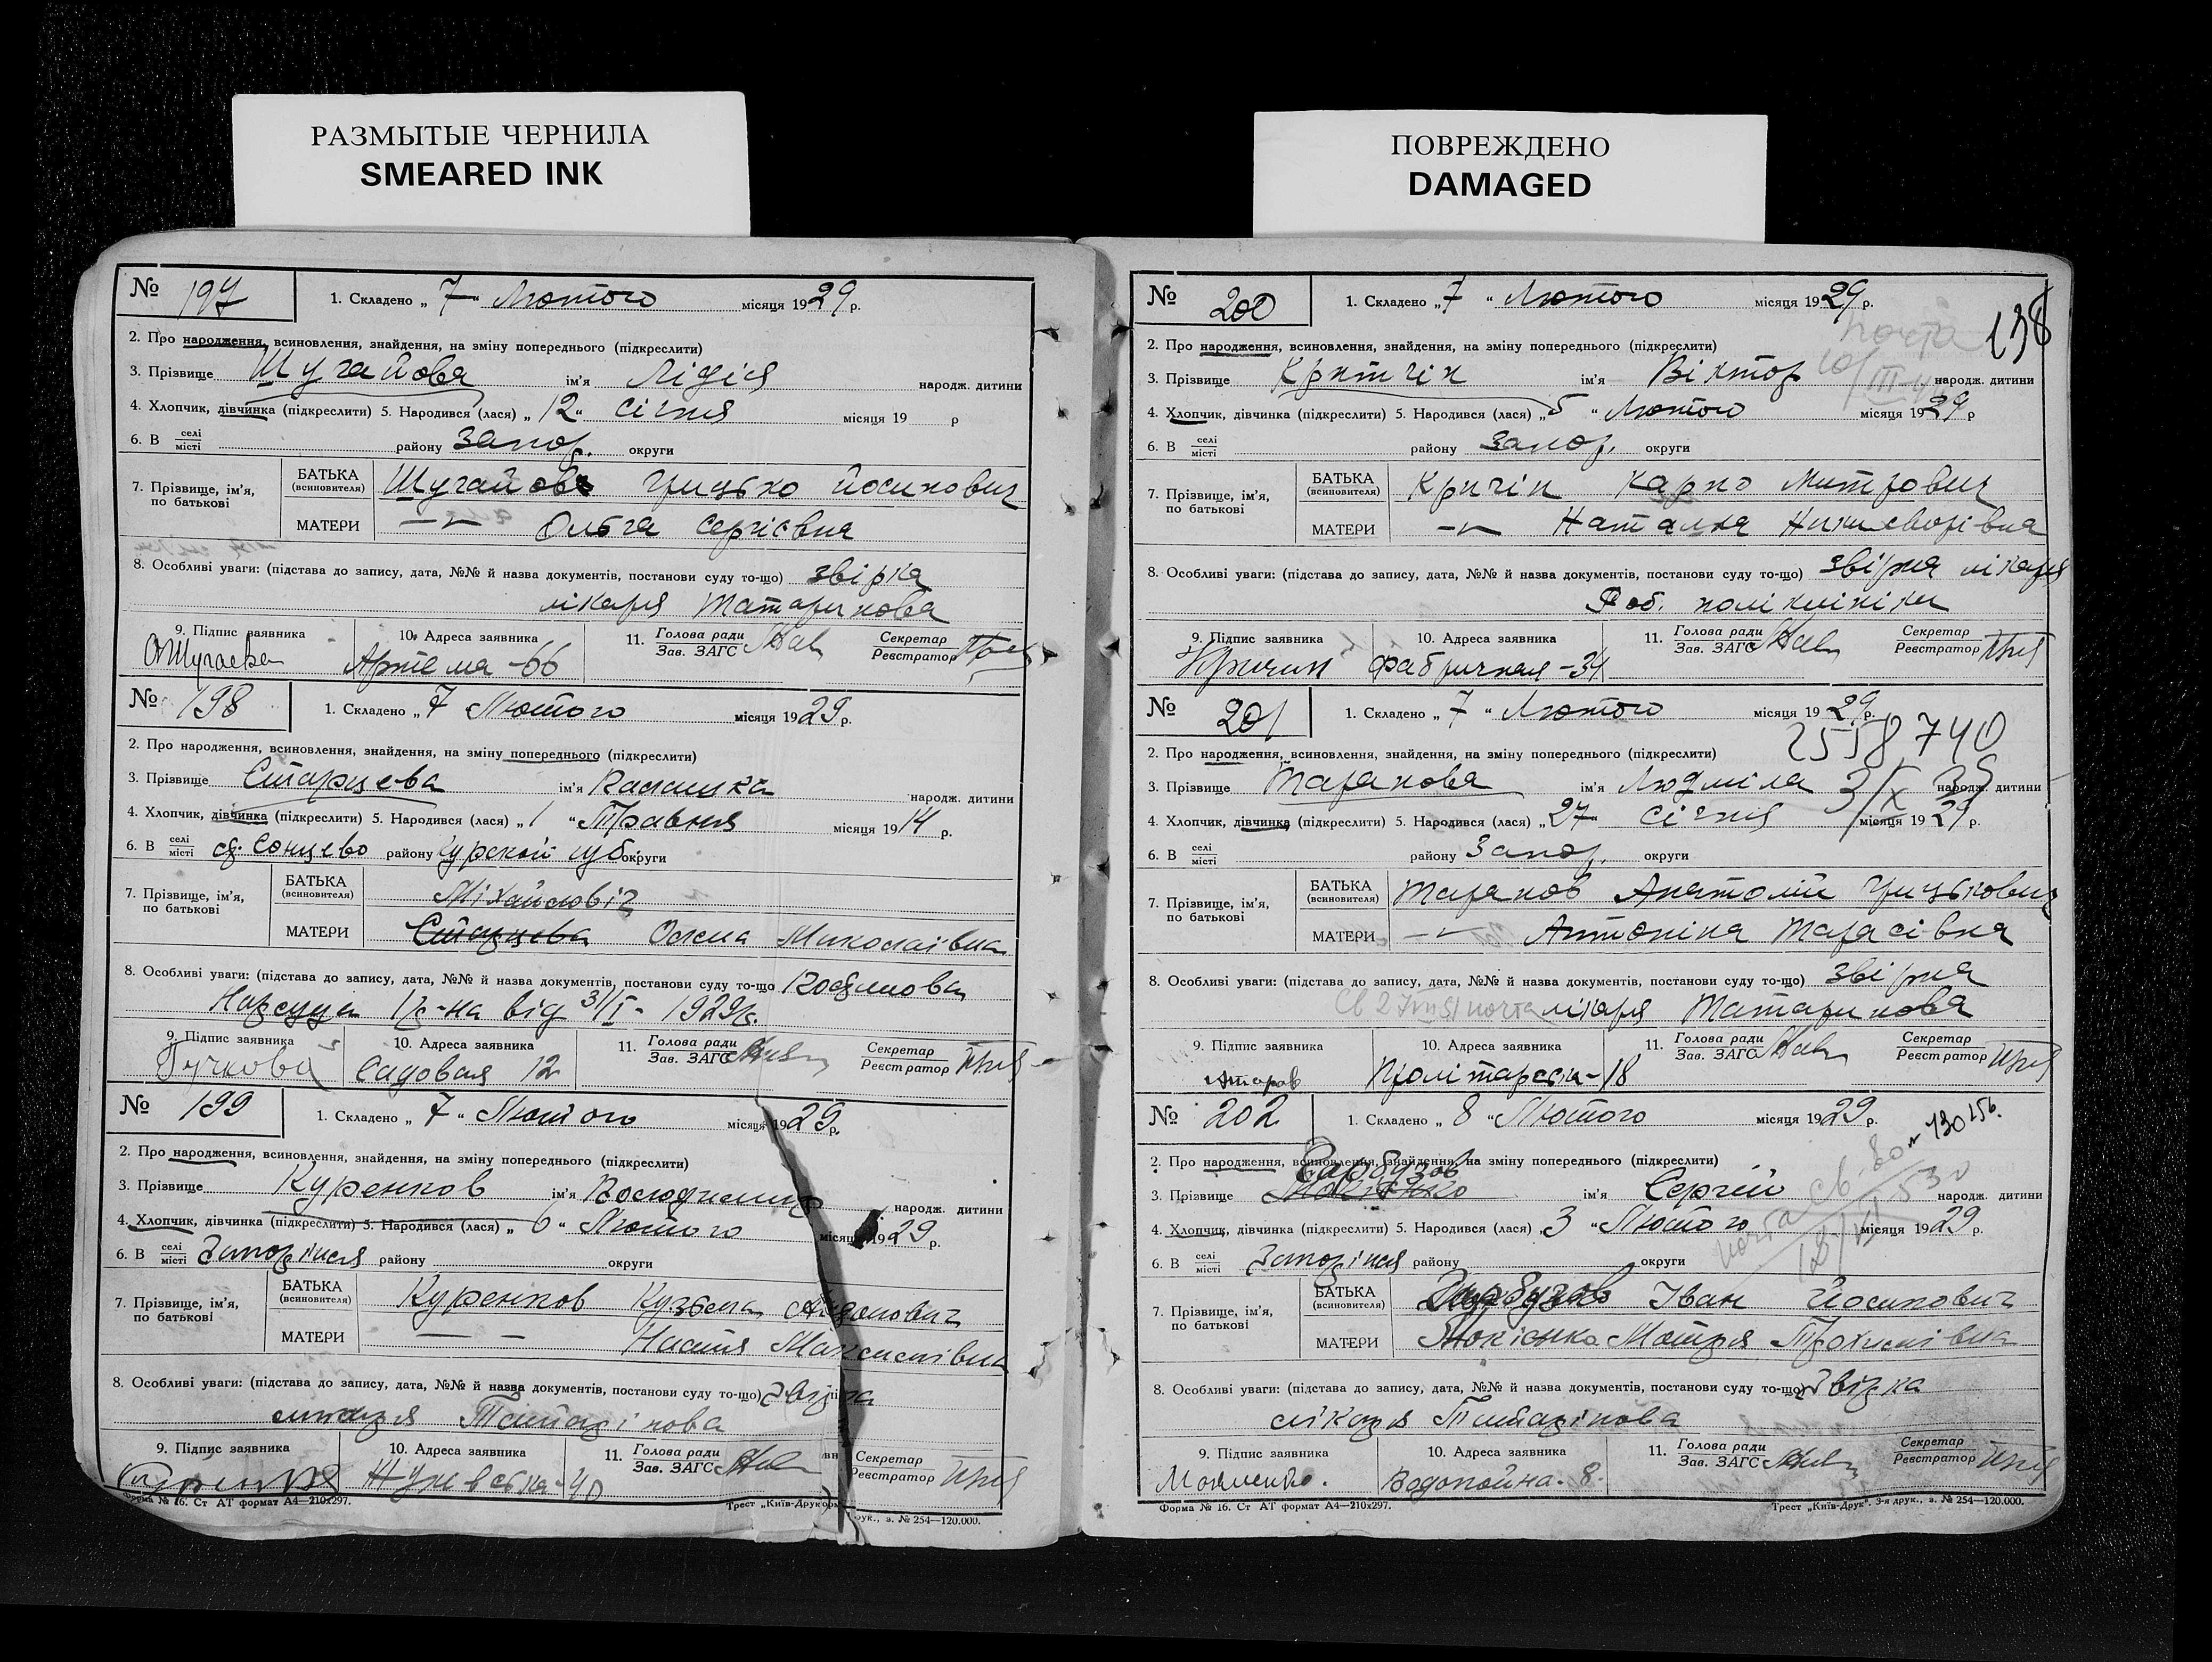 РАЗМЫТЫЕ ЧЕРНИЛА
SMEARED INK
ПОВРЕЖДЕНО
DAMAGED
№ 197
1. Складено „7“ Лютого місяця 1929 р.
2. Про народження, всиновлення, знайдення, на зміну попереднього (підкреслити)
3. Прізвище Шугайова ім'я Лідія народж. дитини
4. Хлопчик, дівчинка (підкреслити) 5. Народився (лася) „12“ січня місяця 19 р
6. В селі місті району Запор. округи
7. Прізвище, ім'я, по батькові
БАТЬКА (всиновителя) Шугайов Грицько Йосипович
МАТЕРИ —〃— Ольга Сергієвна
8. Особливі уваги: (підстава до запису, дата, №№ й назва документів, постанови суду то-що) звірка
лікаря Татаринова
9. Підпис заявника 10. Адреса заявника 11. Голова ради Зав. ЗАГС Секретар Реєстратор
Артема -66
№ 198
1. Складено „7 Лютого місяця 1929 р.
2. Про народження, всиновлення, знайдення, на зміну попереднього (підкреслити)
3. Прізвище Старцева ім'я народж. дитини
4. Хлопчик, дівчинка (підкреслити) 5. Народився (лася) „1 “ Травня місяця 1914 р.
6. В селі місті Сонцево району Курской губ округи
7. Прізвище, ім'я, по батькові
БАТЬКА (всиновителя) Міхайловіч
МАТЕРИ Старцева Олена Миколаївна
8. Особливі уваги: (підстава до запису, дата, №№ й назва документів, постанови суду то-що
Нарсуда 1 р-на від 31/I - 1929 р.
9. Підпис заявника 10. Адреса заявника 11. Голова ради Зав. ЗАГС Секретар Реєстратор
Гучкова Садовая 12
№ 199
1. Складено „7“ Лютого місяця 1929 р.
2. Про народження, всиновлення, знайдення, на зміну попереднього (підкреслити)
3. Прізвище Куренков ім'я Володимир народж. дитини
4. Хлопчик, дівчинка (підкреслити) 5. Народився (лася) „6“ Лютого місяця 1929 р.
6. В селі місті Запоріжя району округи
7. Прізвище, ім'я, по батькові
БАТЬКА (всиновителя) Куренков Кузьма
МАТЕРИ — — Настя Максимівна
8. Особливі уваги: (підстава до запису, дата, №№ й назва документів, постанови суду то-що) звірка
лікаря Татарінова
9. Підпис заявника 10. Адреса заявника 11. Голова ради Зав. ЗАГС Секретар Реєстратор
-40
Форма № 16. Ст АТ формат А4—210x297. Трест „Київ-Друк друк., з. № 254—120.000.
138
№ 200
1. Складено „7“ Лютого місяця 1929 р.
почта
2. Про народження, всиновлення, знайдення, на зміну попереднього (підкреслити)
3. Прізвище Критчін ім'я Віктор народж. дитини
4. Хлопчик, дівчинка (підкреслити) 5. Народився (лася) „5 “ Лютого місяця 1929 р
6. В селі місті району Запор. округи
7. Прізвище, ім'я, по батькові
БАТЬКА (всиновителя) Кричін Карпо Митрович
МАТЕРИ —〃— Наталка
8. Особливі уваги: (підстава до запису, дата, №№ й назва документів, постанови суду то-що) звірка лікаря
Роб. поліклініки
9. Підпис заявника 10. Адреса заявника 11. Голова ради Зав. ЗАГС Секретар Реєстратор
Кричин фабричная -34
№ 201
1. Складено „7“ Лютого місяця 1929 р.
2558740
2. Про народження, всиновлення, знайдення, на зміну попереднього (підкреслити)
3. Прізвище Таранова ім'я Людміла народж. дитини
3/X 35
4. Хлопчик, дівчинка (підкреслити) 5. Народився (лася) „27“ січня місяця 1929 р.
6. В селі місті району Запор. округи
7. Прізвище, ім'я, по батькові
БАТЬКА (всиновителя) Таранов Анатолій Грицькович
МАТЕРИ —〃— Антоніна Тарасівна
8. Особливі уваги: (підстава до запису, дата, №№ й назва документів, постанови суду то-що) звірка
лікаря Татаринова
9. Підпис заявника 10. Адреса заявника 11. Голова ради Зав. ЗАГС Секретар Реєстратор
-18
№ 202
1. Складено „8 “ Лютого місяця 1929 р.
2. Про народження, всиновлення, знайдення, на зміну попереднього (підкреслити)
Гарбузов
3. Прізвище ім'я Сергій народж. дитини
4. Хлопчик, дівчинка (підкреслити) 5. Народився (лася) „3 “ Лютого місяця 1929 р.
6. В селі місті Запоріжя району округи
7. Прізвище, ім'я, по батькові
БАТЬКА (всиновителя) Гарбузов Іван Йосипович
МАТЕРИ Мотря Трохимівна
8. Особливі уваги: (підстава до запису, дата, №№ й назва документів, постанови суду то-що) Звірка
лікаря Татарінова
9. Підпис заявника 10. Адреса заявника 11. Голова ради Зав. ЗАГС Секретар Реєстратор
Водопойна. 8.
Форма № 16. Ст АТ формат А4—210x297. Трест „Київ-Друк“. 3-я друк., з. № 254—120.000.